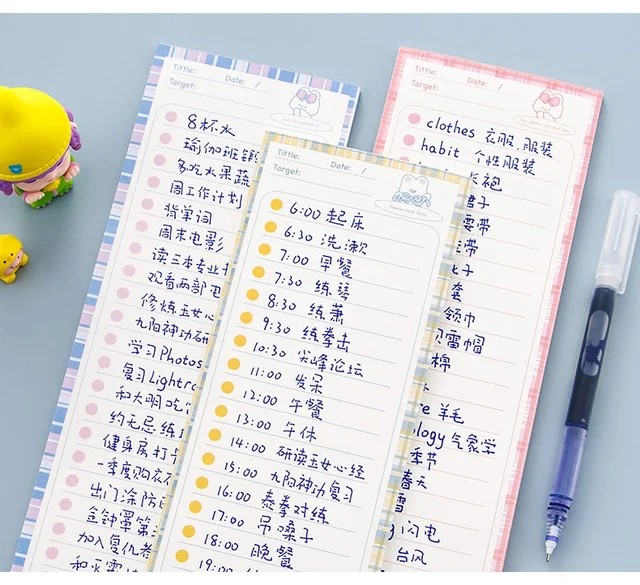 Tittle:
Date: /
Target:
8杯水
瑜伽班
多吃水果蔬
周工作计划
背单词
周末电影
读三本专业
观看两部电
修炼玉女心
九阳神功研
学习Photos
复习Lightro
和大明吃
约无忌练
健身房打卡
一季度购衣
出门涂防
金钟罩第
加入复仇者
Tittle:
Date: /
Target:
6:00 起床
6:30 洗漱
7:00 早餐
7:30 练琴
8:30 练萧
9:30 练拳击
10:30 尖峰论坛
11:00 发呆
12:00 午餐
13:00 午休
14:00 研读玉女心经
15:00 九阳神功复习
16:00 泰拳对练
17:00 吊嗓子
18:00 晚餐
19:00
Tittle:
Date: /
Target:
clothes 衣服，服装
habit 个性服装
长袍
裙子
腰带
带
套
领巾
贝雷帽
棉
羊毛
ology 气象学
季节
春天
雪
闪电
台风